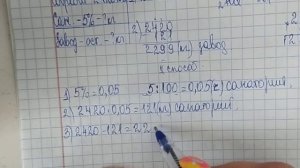 Сан. - 5% - ?кг.
Завод - ост. - ?кг.
2) 2420
121
2299(кг) завод
способ.
1) 5% = 0,05
5:100=0,05(г) санаторий,
2) 2420·0,05=121(кг) санаторий,
3) 2420-121=22